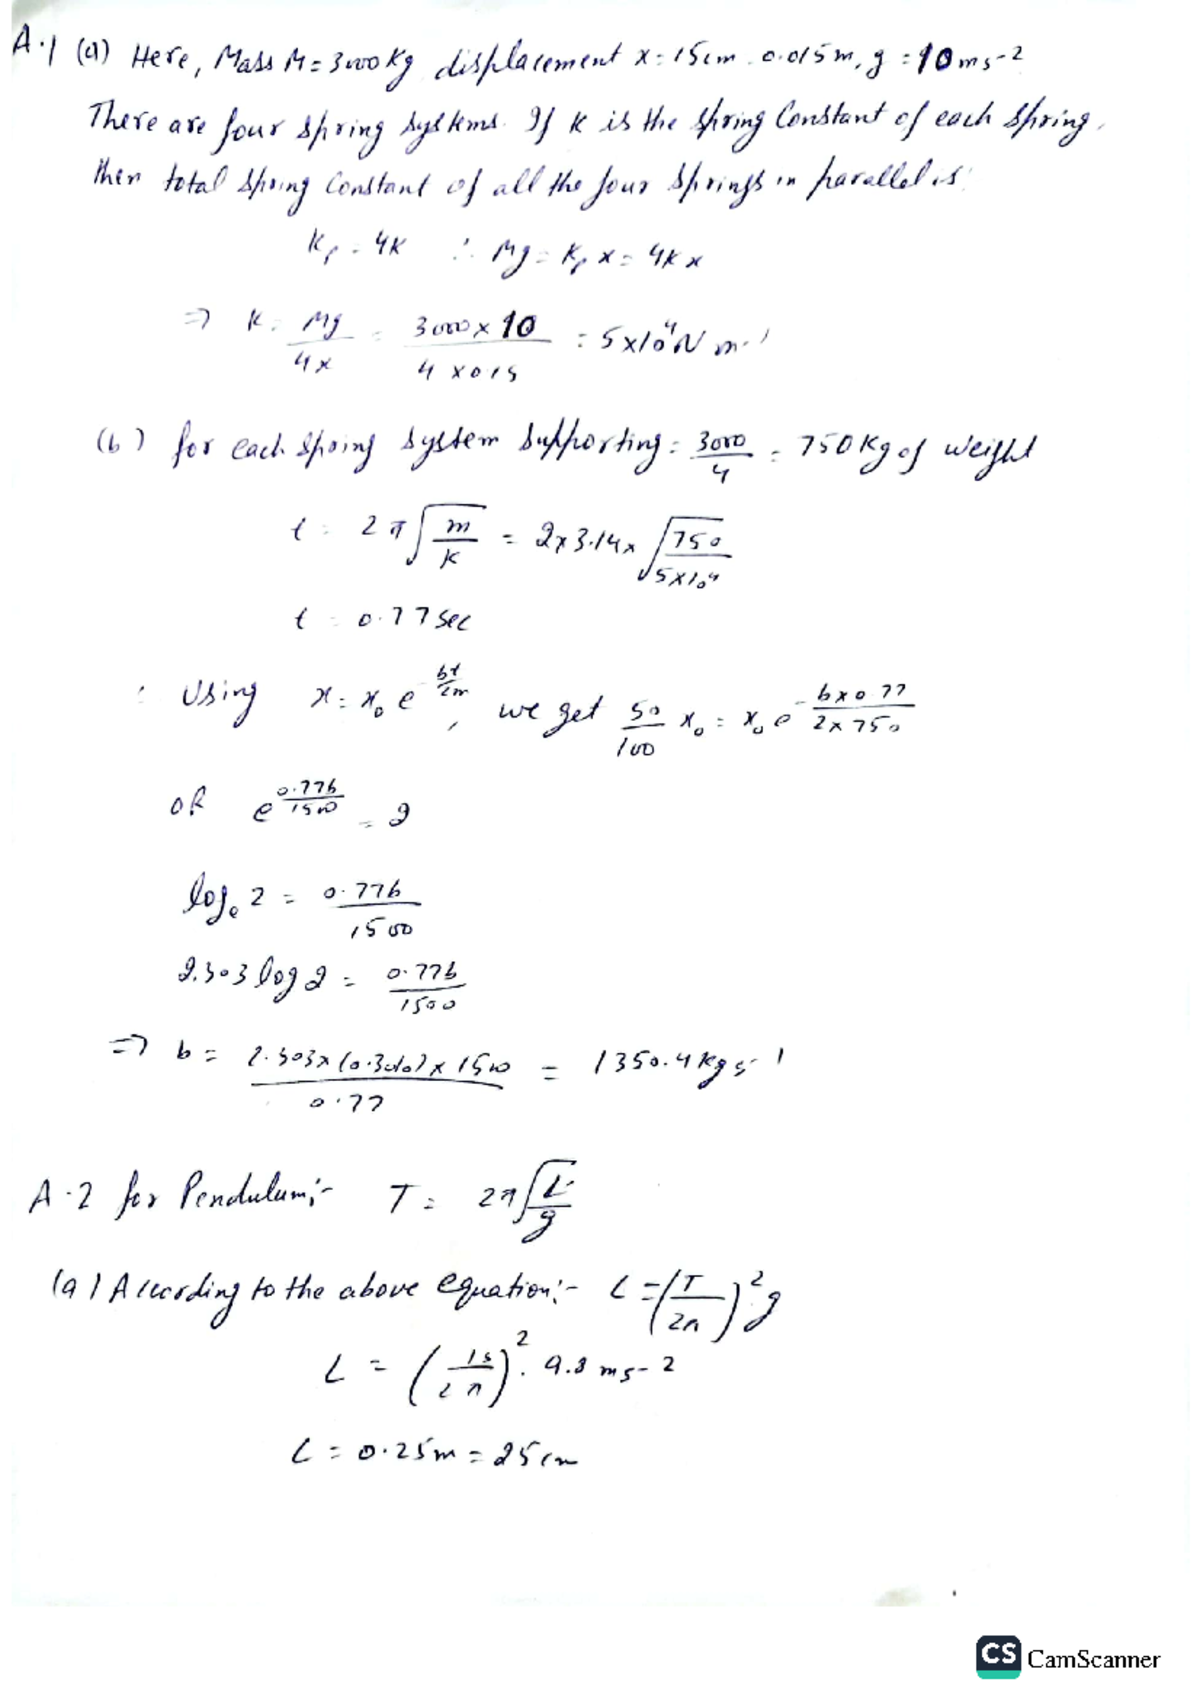 A.1 (a) Here, Mass M = 3000 kg displacement x = 15 cm. 0.015 m, g = 10 ms-2
There are four spring systems. If K is the spring Constant of each spring,
then total spring Constant of all the four springs in parallel is:
Kp = 4K ∴ Mg = Kp x = 4K x
⇒ K = Mg/4x = 3000 × 10 / 4 × 0.15 = 5 × 10^4 N m-1
(b) for each spring system supporting = 3000/4 = 750 Kg of weight
t = 2π √(m/K) = 2 × 3.14 × √(750/5×10^4)
t = 0.77 sec
: Using x = x₀ e^(-bt/2m), we get 50/100 x₀ = x₀ e^(-b × 0.77 / 2 × 750)
OR e^(0.77b/1500) = 2
logₑ 2 = 0.77b/1500
2.303 log 2 = 0.77b/1500
⇒ b = 2.303 × (0.3010) × 1500 / 0.77 = 1350.4 kg s-1
A.2 for Pendulum:- T = 2π √(L/g)
(a) According to the above equation:- L = (T/2π)^2 g
L = (1s/2π)^2 . 9.8 ms-2
L = 0.25m = 25cm
CS CamScanner